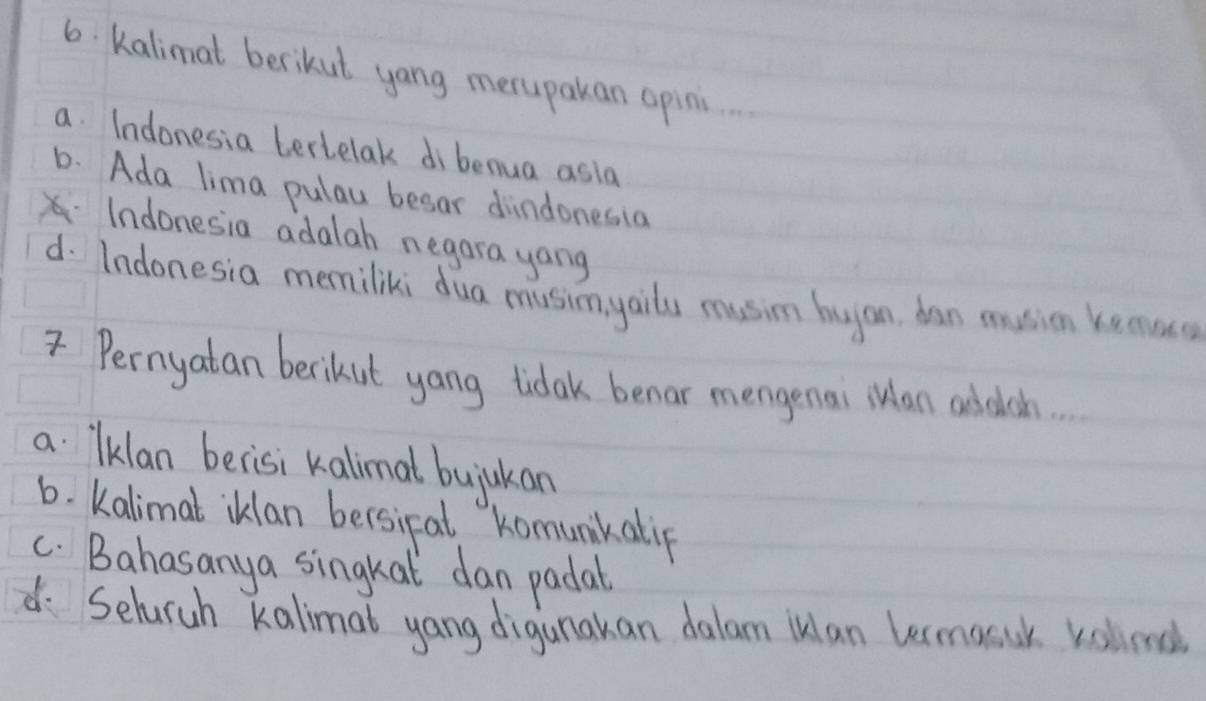 6. Kalimat berikut yang merupakan opini....
a. Indonesia terletak di benua asia
b. Ada lima pulau besar diindonesia
Indonesia adalah negara yang
d. Indonesia memiliki dua musim, yaitu musim hujan, dan musim kemara
7 Pernyatan berikut yang tidak benar mengenai iklan adalah....
a. Iklan berisi kalimat bujukan
b. Kalimat iklan bersifat komunikatif
c. Bahasanya singkat dan padat
d. Seluruh kalimat yang digunakan dalam iklan termasuk kalimat